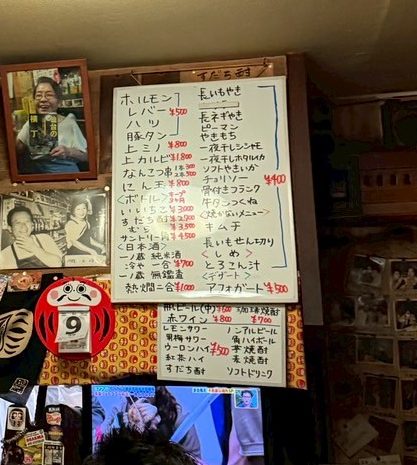 すだち酎
ホルモン
レバー ¥500
ハツ
豚タン
上ミノ ¥800
上カルビ ¥1.800
なんこつ串 1本 300 2本 500
にん玉 ¥800
<ボトル>
いいちこ ¥3000
サントリー
<日本酒>
一ノ蔵 純米酒
冷や 一合 ¥700
一ノ蔵 無鑑査
熱燗 二合 ¥1000
長いもやき
長ネギやき
ピーマン
やきもち
一夜干しシシャモ
一夜干しホタルイカ
ソフトやきいか
チョリソー ¥400
骨付きフランク
牛タンつくね
<焼かないメニュー>
キムチ
長いもせん切り
<しめ>
とろこん汁
<デザート>
アフォガード ¥500
瓶ビール(中)
赤ワイン ¥800
¥700
レモンサワー
男梅サワー
ウーロンハイ ¥500
紅茶ハイ
すだち酎
ノンアルビール
角ハイボール
芋焼酎
麦焼酎
ソフトドリンク
9